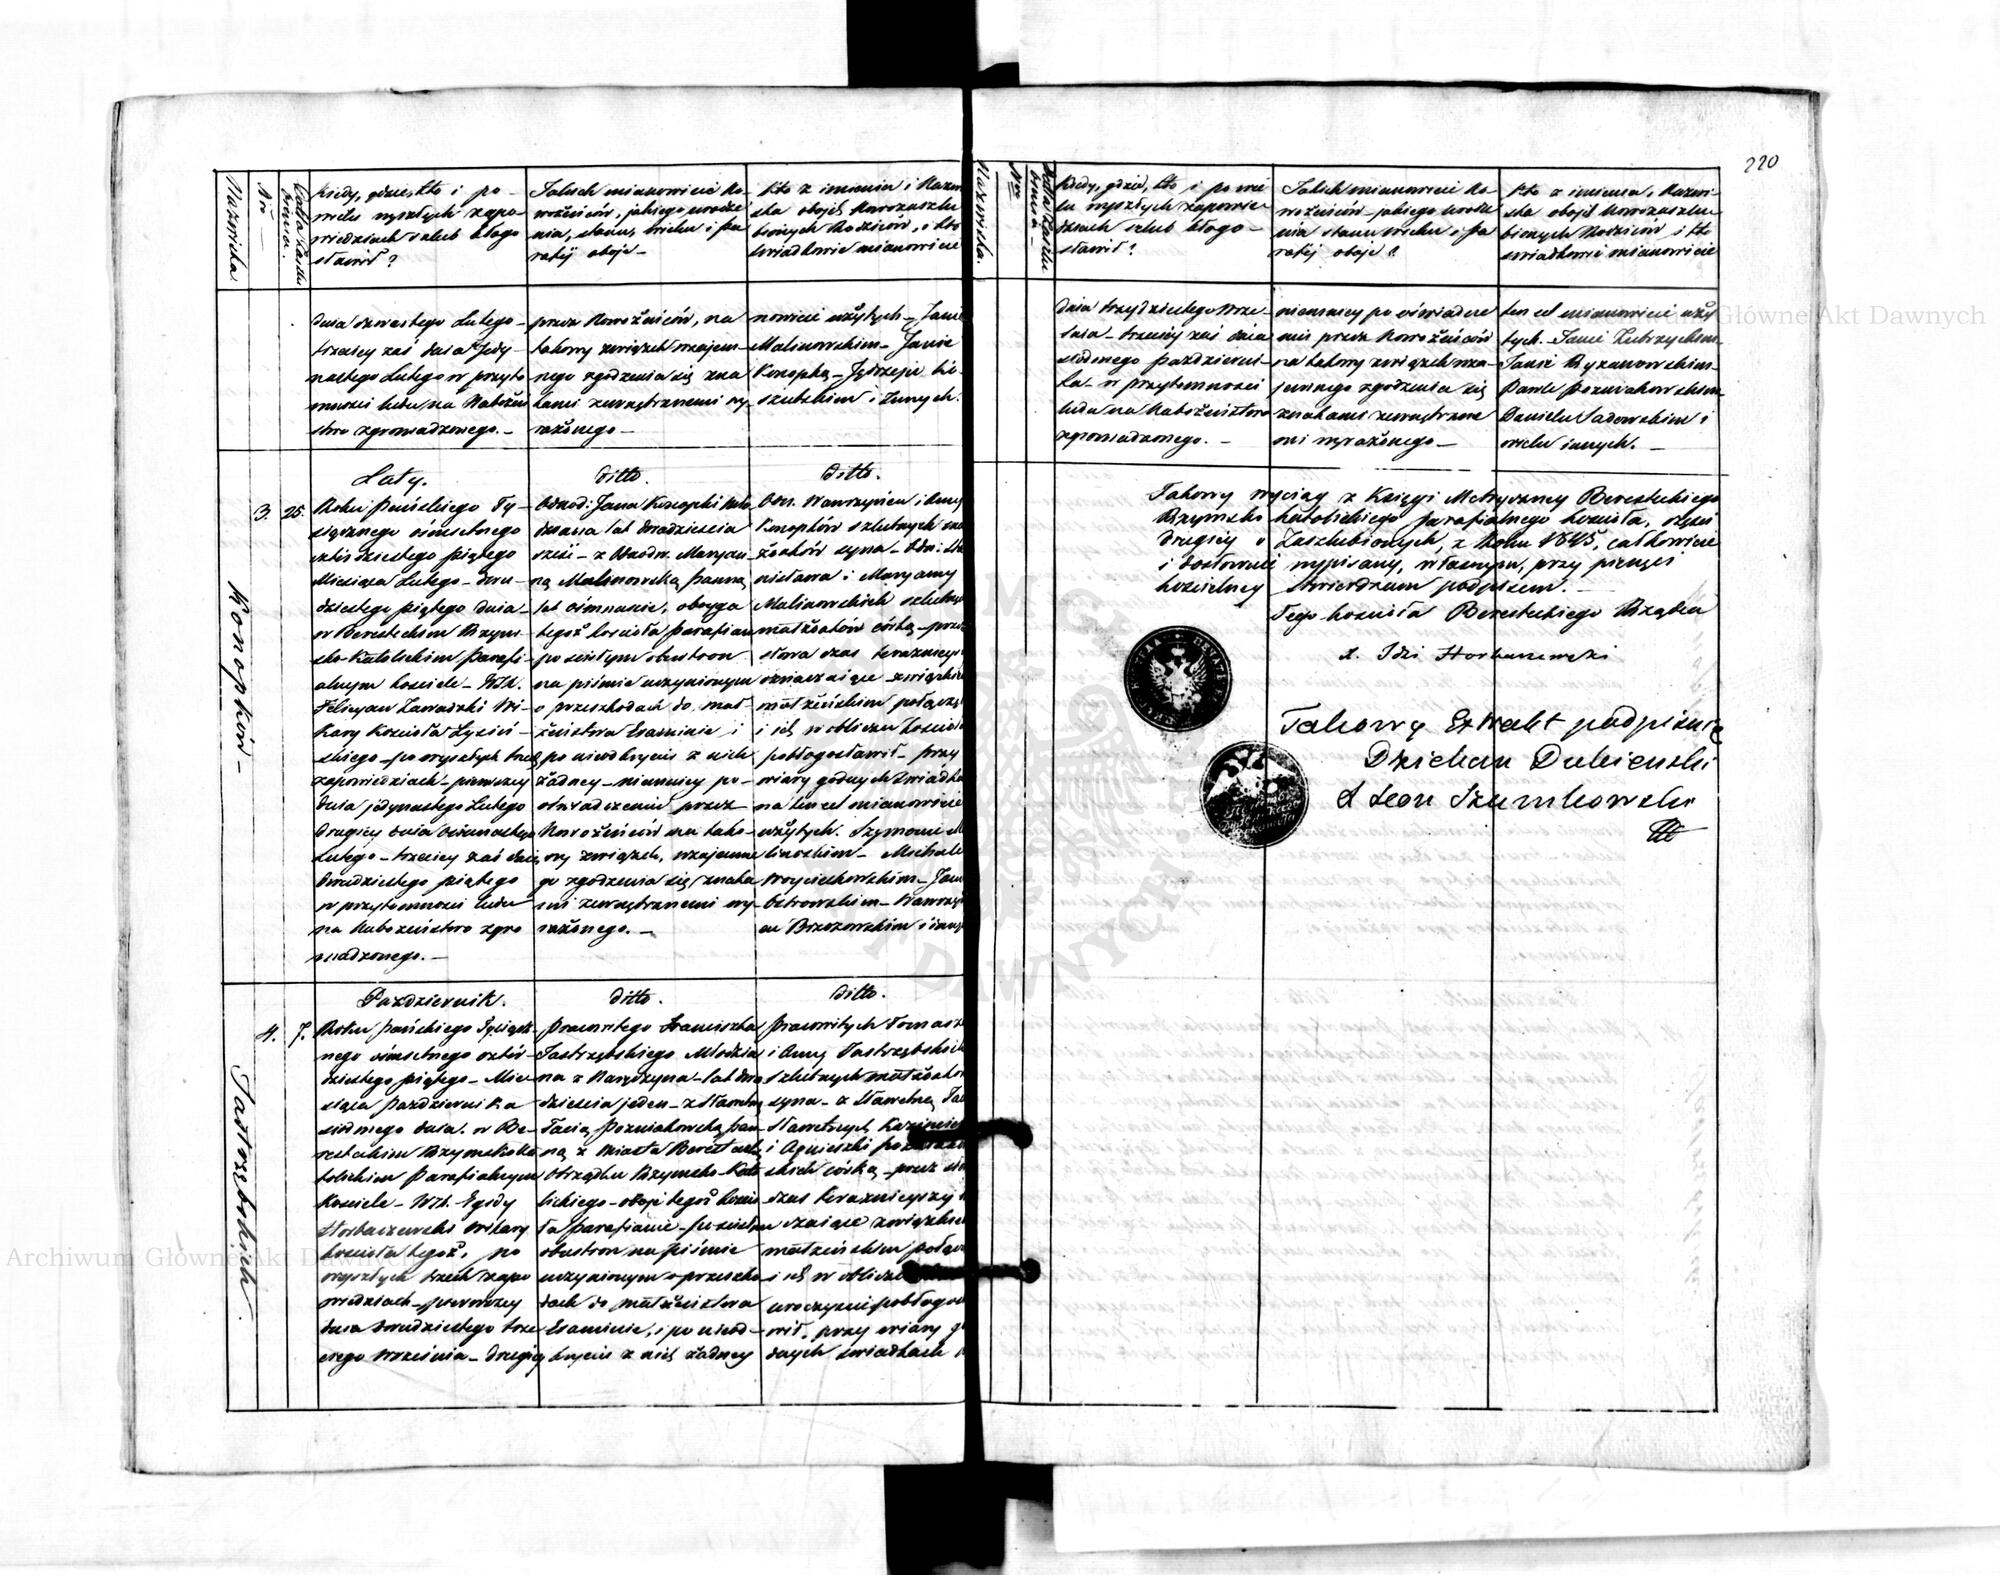 220
Nazwiska.
Nro
Kiedy, gdzie, kto i po
wielu wyszłych zapo-
wiedziach ślub błogo
sławił?
Jakich mianowicie No-
wożeńców, jakiego urodze
nia, stanu, wieku i pa
rafij oboje –
Kto z imienia i Nazwi
ska obojch Nowozaszlu
bionych Rodziców, i kto
świadkowie mianowicie
dnia czwartego Lutego –
trzeciey zaś dnia Jedy-
nastego Lutego w przyto
mności ludu na Nabożeń
stwo zgromadzonego. –
przez Nowożeńców, na
takowy związek wzajem-
nego zgodzenia się zna
kami zewnętrznemi wy
rażonego –
nowicie użytych – Janie
Malinowskim – Janie
Konopką – Jędrzeju
i innych.
Konopków –
3. 25.
Luty.
Roku Pańskiego Ty-
siącznego ośmsetnego
czterdziestego piątego
Miesiąca Lutego – dwu-
dziestego piątego dnia –
w Beresteckim Rzym-
sko-Katolickim Parafi-
alnym kościele – WX.
Felicyan Zawadzki Wi-
kary Kościoła
– po wyszłych trzech
zapowiedziach – pierwszey
dnia jedynastego Lutego
drugiey dnia ośmnastego
Lutego – trzeciey zaś dnia
dwudziestego piątego
w przytomności ludu
na Nabożeństwo zgro
madzonego. –
ditto.
Jana Konopki Mło
dziana lat dwadzieścia
sześć – z Maryan
ną Malinowską panną
lat ośmnaście, obojga
tegoż kościoła parafian
po ścisłym obustron
na piśmie uczynionym
o przeszkodach do mał-
żeństwa Examinie i
po nieodkryciu z nich
żadney – niemniey po-
oświadczeniu przez
Nowożeńców na tako-
wy związek, wzajemne
go zgodzenia się znaka
mi zewnętrznemi wy
rażonego. –
ditto.
Wawrzyńca i Anny
Konopków szlubnych mał
żonków syna –
nisława i Maryanny
Malinowskich szlubnych
małżonków córką – przez
słowa czas teraznieyszy
oznaczaiące – związkiem
małżeńskim połączył
i ich w obliczu Kościoła
pobłogosławił – przy
wiary godnych Świadkach
na ten cel mianowicie
użytych. Szymonie
– Michale
Woyciechowskim – Janie
Ostrowskim – Wawrzyń
cu Brzozowskim i innych
Jastrzębskich.
4. 7.
Październik.
Roku Pańskiego Tysiącz-
nego ośmsetnego czter-
dziestego piątego – Mie
siąca Października
siódmego dnia. w Be-
resteckim Rzymsko Ka
tolickim Parafialnym
Kościele – WX. Egidy
Horbaczewski Wikary
kościoła tegoż, po
wyszłych trzech zapo
wiedziach – pierwszey
dnia dwudziestego trze
ciego Września – drugiey
ditto.
Pracowitego Franciszka
Jastrzębskiego Młodzia
na z – lat dwa
dzieścia jeden – z Sławetną
Poźniakowską pan
ną z Miasta Beresteczka
Obrządku Rzymsko-Kato
lickiego – oboje tegoż kościo
ła parafianie – po ścisłem
obustron na piśmie
uczynionym o przeszko
dach do małżeństwa
Examinie, i po nieod-
kryciu z nich żadney
ditto.
Pracowitych Tomasza
i Anny Jastrzębskich
szlubnych małżonków
syna – z Sławetną
Sławetnych Kazimierza
i Agnieszki
skich córką – przez
czas teraznieyszy
czaiące związkiem
małżeńskim połączył
i ich w obliczu
uroczyście pobłogosła
wił, przy wiary go
dnych świadkach
Nazwiska.
Nro
Kiedy, gdzie, kto i po wie
lu wyszłych zapowie
dziach szlub błogo-
sławił?
Jakich mianowicie No-
wożeńców – jakiego urodze
nia stanu wieku i pa
rafij oboje?
Kto z imienia, Nazwi-
ska obojch Nowozaszlu-
bionych Rodziców i kto
świadkowie mianowicie
dnia trzydziestego Wrze-
śnia – trzeciey zaś dnia
siódmego Październi-
ka – w przytomności
ludu na Nabożeństwo
zgromadzonego. –
niemniey po oświadcze
niu przez Nowożeńców
na takowy związek wza-
jemnego zgodzenia się
znakami zewnętrzne
mi wyrażonego –
ten cel mianowicie uży
tych. Janie
Janie Ryzanowskim
Pawle Poźniakowskim
Danielu Sadowskim i
wielu innych. –
Takowy wyciąg z Księgi Metryczney Beresteckiego
Rzymsko Katolickiego parafialnego kościoła, części
drugiey o Zaszlubionych, z Roku 1845, całkowicie
i dosłownie wypisany, własnym, przy pieczęci
kościelney stwierdzam podpisem. –
Tego kościoła Beresteckiego Rządca
X. Idzi Horbaczewski
Takowy Extrakt podpisuię
Dziekan Dubieński
X Leon Szumkowski